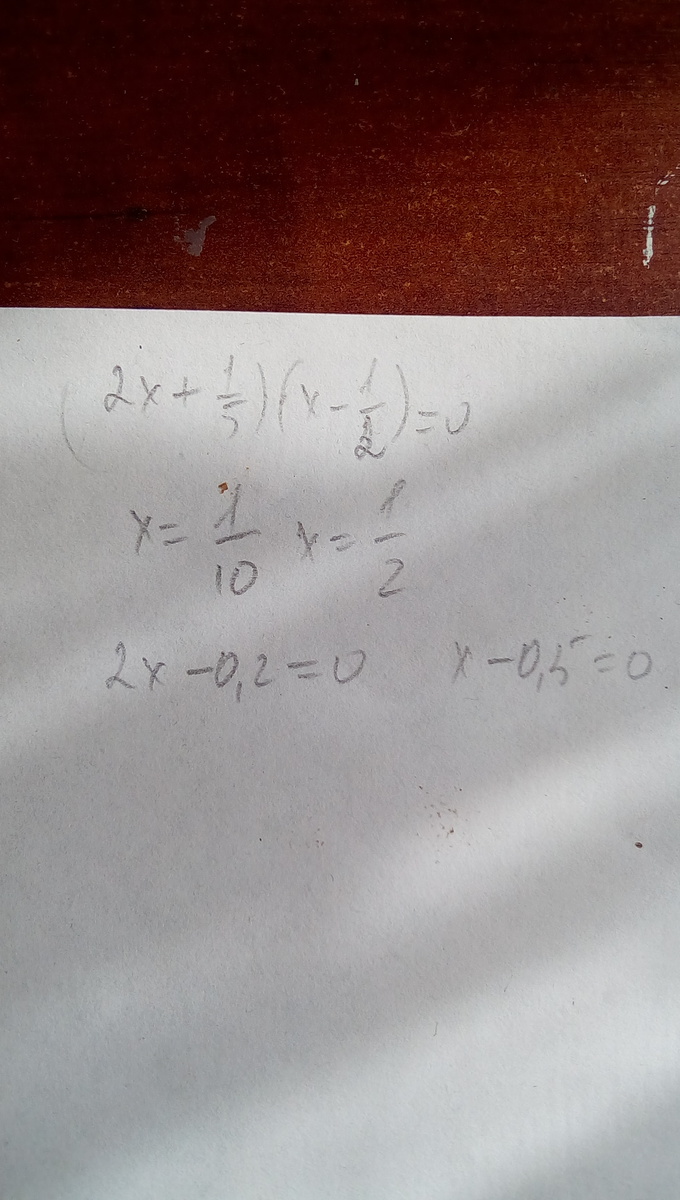 (2x + 1/5)(x - 1/2) = 0
x = 1/10 x = 1/2
2x - 0,2 = 0 x - 0,5 = 0